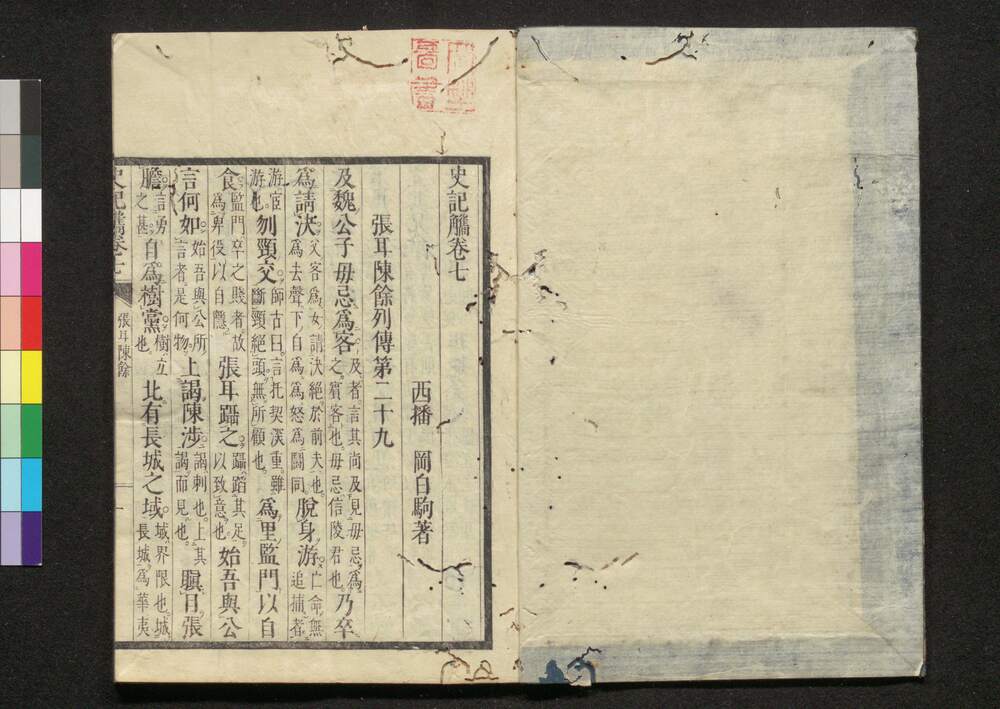 史記觿卷七
西播 岡白駒著
張耳陳餘列傳第二十九
及魏公子毋忌爲客及者言其尚及見毋忌爲之賓客也毋忌信陵君也乃卒
爲請決父客爲女請決絕於前夫也爲去聲下自爲爲怒爲鬬同脫身游亡命無追捕者
游宦游也刎頸交師古曰言托契深重雖斷頸絕頭無所顧也爲里監門以自
食監門卒之賤者故爲卑役以自隱張耳躡之躡蹈其足以致意也始吾與公
言何如始吾與公所言者是何物上謁陳涉謁刺也上其謁而見也瞋目張
膽言勇之甚自爲樹黨樹立也北有長城之域域界限也城長城爲華夷
史記觿卷七
張耳陳餘